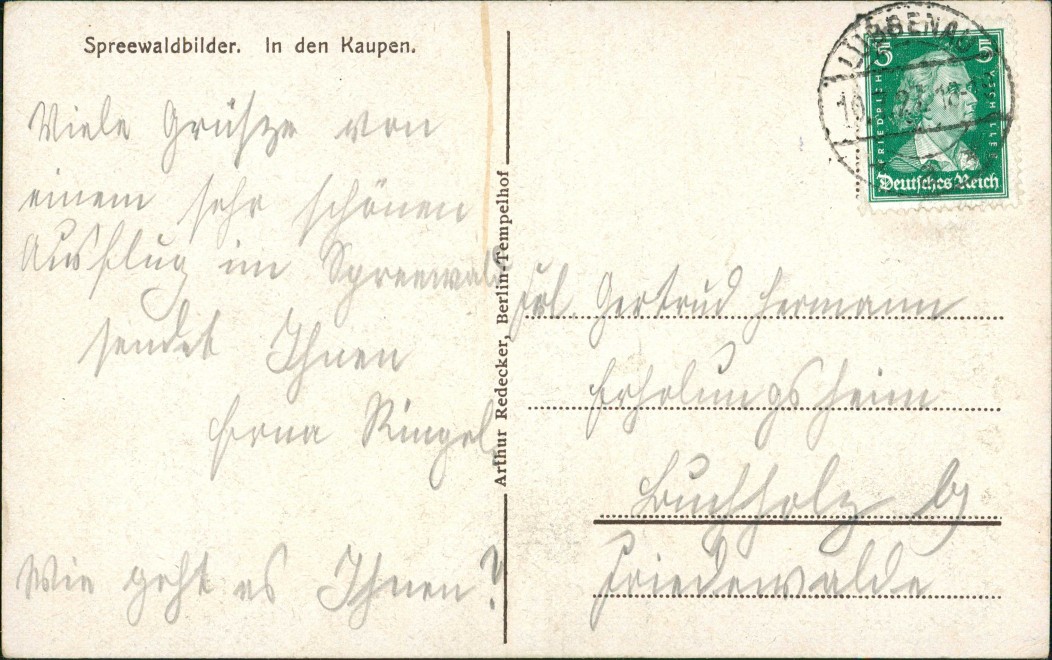 Spreewaldbilder. In den Kaupen.
Viele Grüsze von
einem sehr schönen
Ausflug im Spreewald
sendet Ihnen
Erna Ringel
Wie geht es Ihnen?
Arthur Redecker, Berlin-Tempelhof
LÜBBENAU
5 5
FRIEDRICH
SCHILLER
Deutsches Reich
Frl. Gertrud Hermann
Erholungsheim
Buchholz b/
Friedewalde